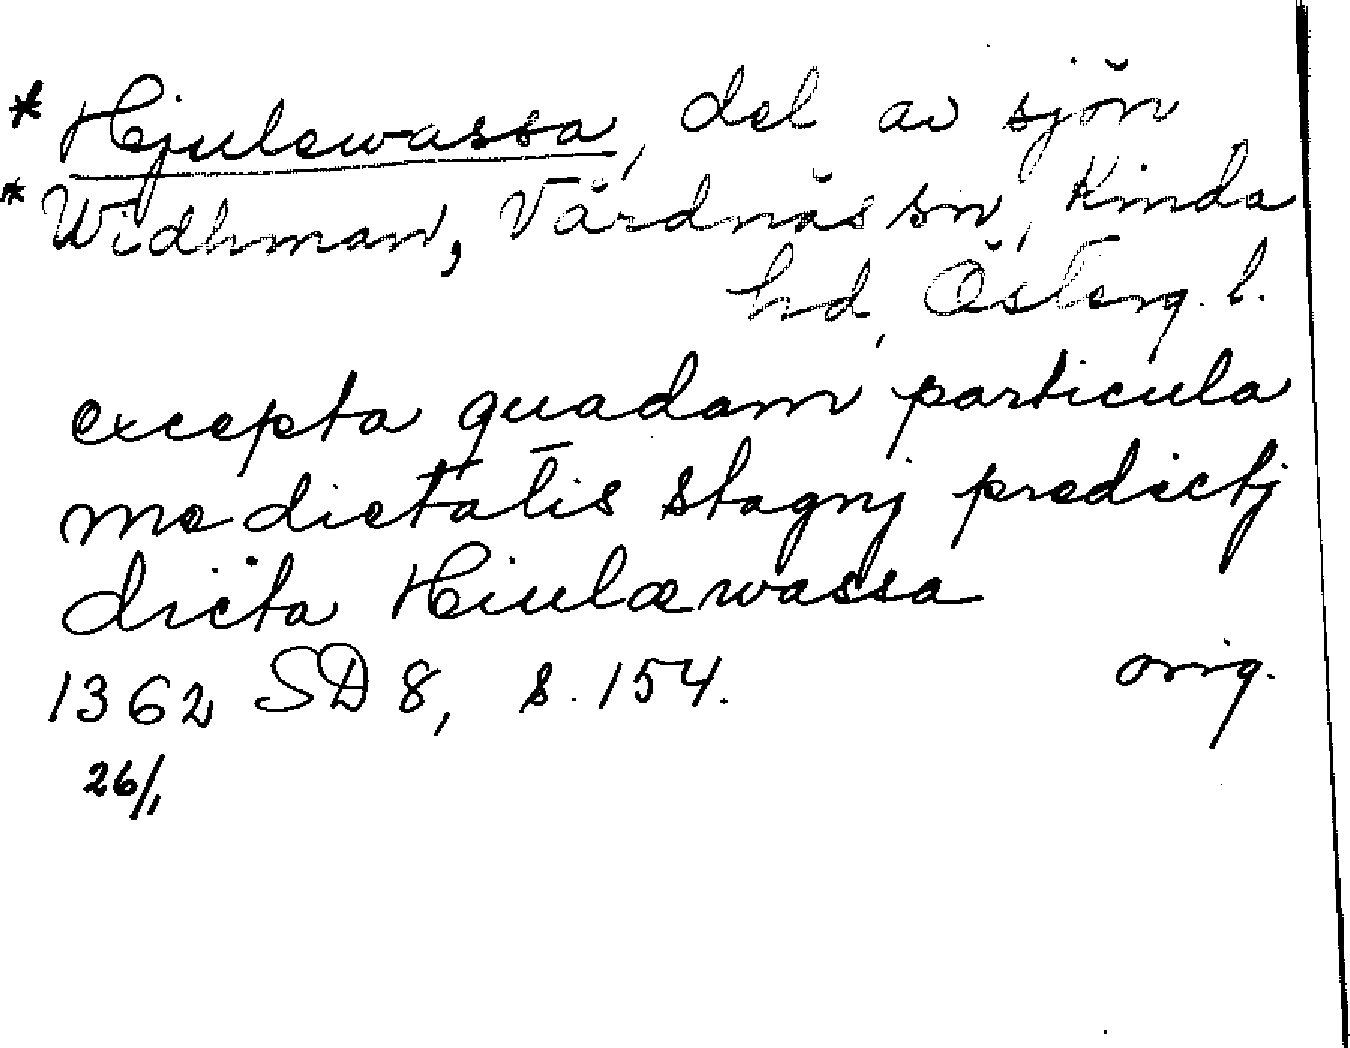 * Hjulewassa, del av sjön
* Widhman, Vårdnäs sn, Kinda
hd, Österg. l.
excepta quadam particula
medietatis stagnj predictj
dicta Hiulæwassa
1362 SD 8, s. 154. orig.
26/1